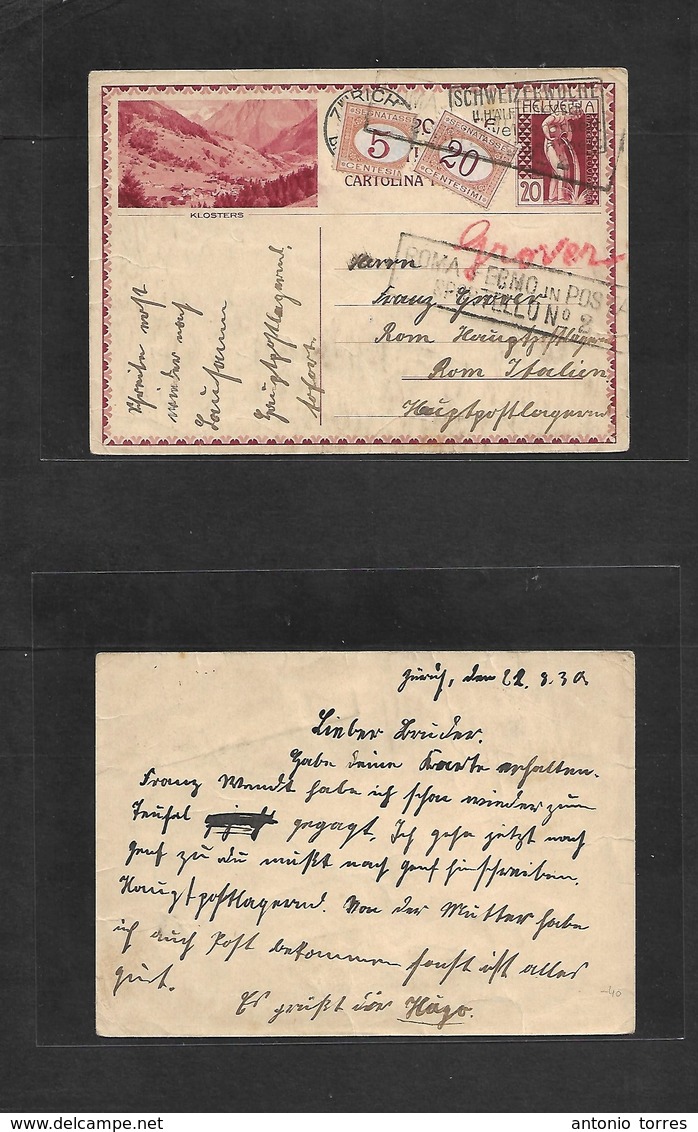 ZÜRICH
SCHWEIZERWOCHE
HELVETIA
SEGNATASSE
5
CENTESIMI
SEGNATASSE
20
CENTESIMI
CARTOLINA
20
KLOSTERS
Grover
ROMA FERMO IN POSTA
SPORTELLO Nº 2
Herrn
Franz Grover
Rom Hauptpostlagernd
Rom Italien
Hauptpostlagernd
Schreibe erst
wieder nach
Lausanne
Hauptpostlagernd.
sofort.
Zürich, den 22.9.30
Lieber Bruder.
Habe deine Karte erhalten.
Franz Wendt habe ich schon wieder zum
Teufel gejagt. Ich gehe jetzt nach
Genf zu du mußt nach Genf hinschreiben.
Hauptpostlagernd. Von der Mutter habe
ich auch Post bekommen sonst ist alles
gut.
Es grüßt dir Hugo.
-40
antonio torres